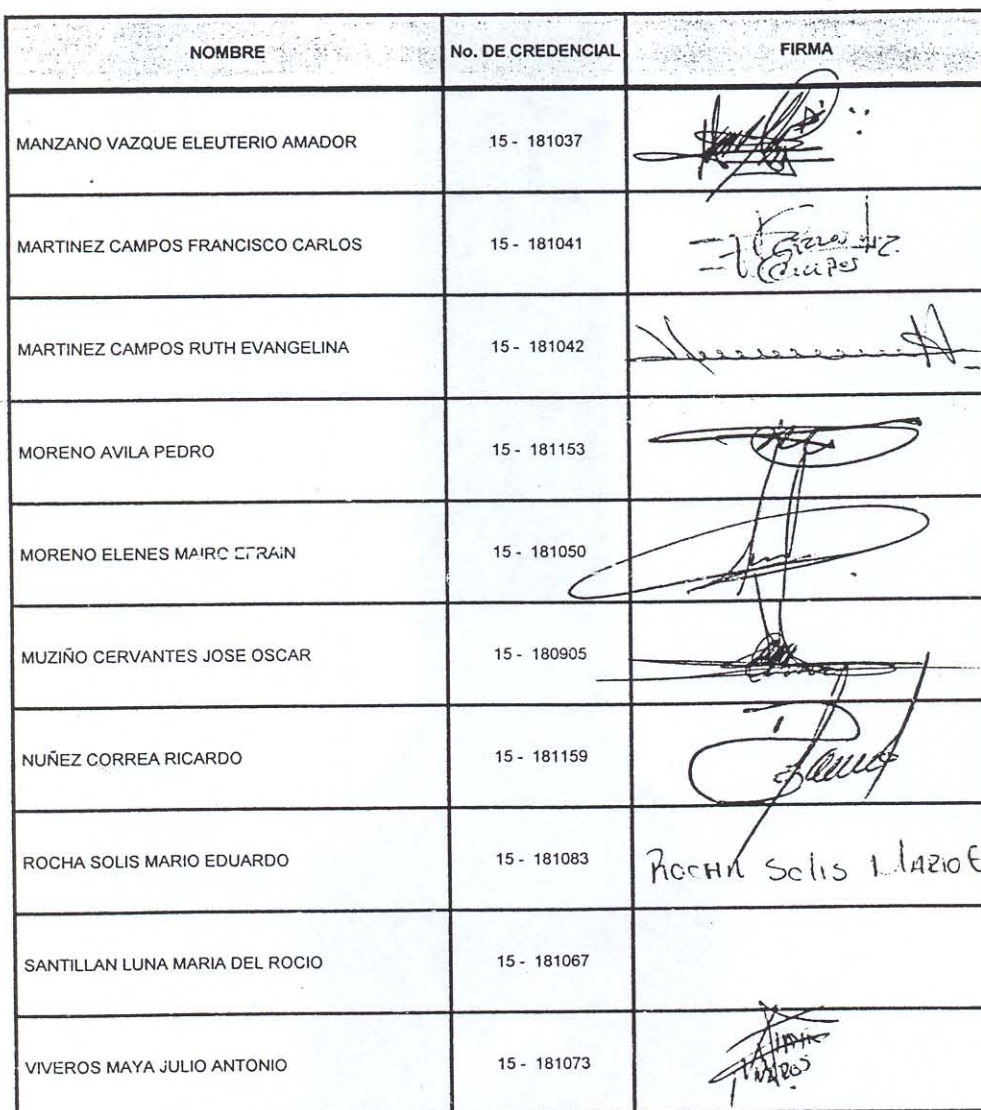 NOMBRE No. DE CREDENCIAL FIRMA
MANZANO VAZQUE ELEUTERIO AMADOR 15 - 181037
MARTINEZ CAMPOS FRANCISCO CARLOS 15 - 181041
MARTINEZ CAMPOS RUTH EVANGELINA 15 - 181042
MORENO AVILA PEDRO 15 - 181153
MORENO ELENES 15 - 181050
MUZIÑO CERVANTES JOSE OSCAR 15 - 180905
NUÑEZ CORREA RICARDO 15 - 181159
ROCHA SOLIS MARIO EDUARDO 15 - 181083 ROCHA Solis MARIO E
SANTILLAN LUNA MARIA DEL ROCIO 15 - 181067
VIVEROS MAYA JULIO ANTONIO 15 - 181073